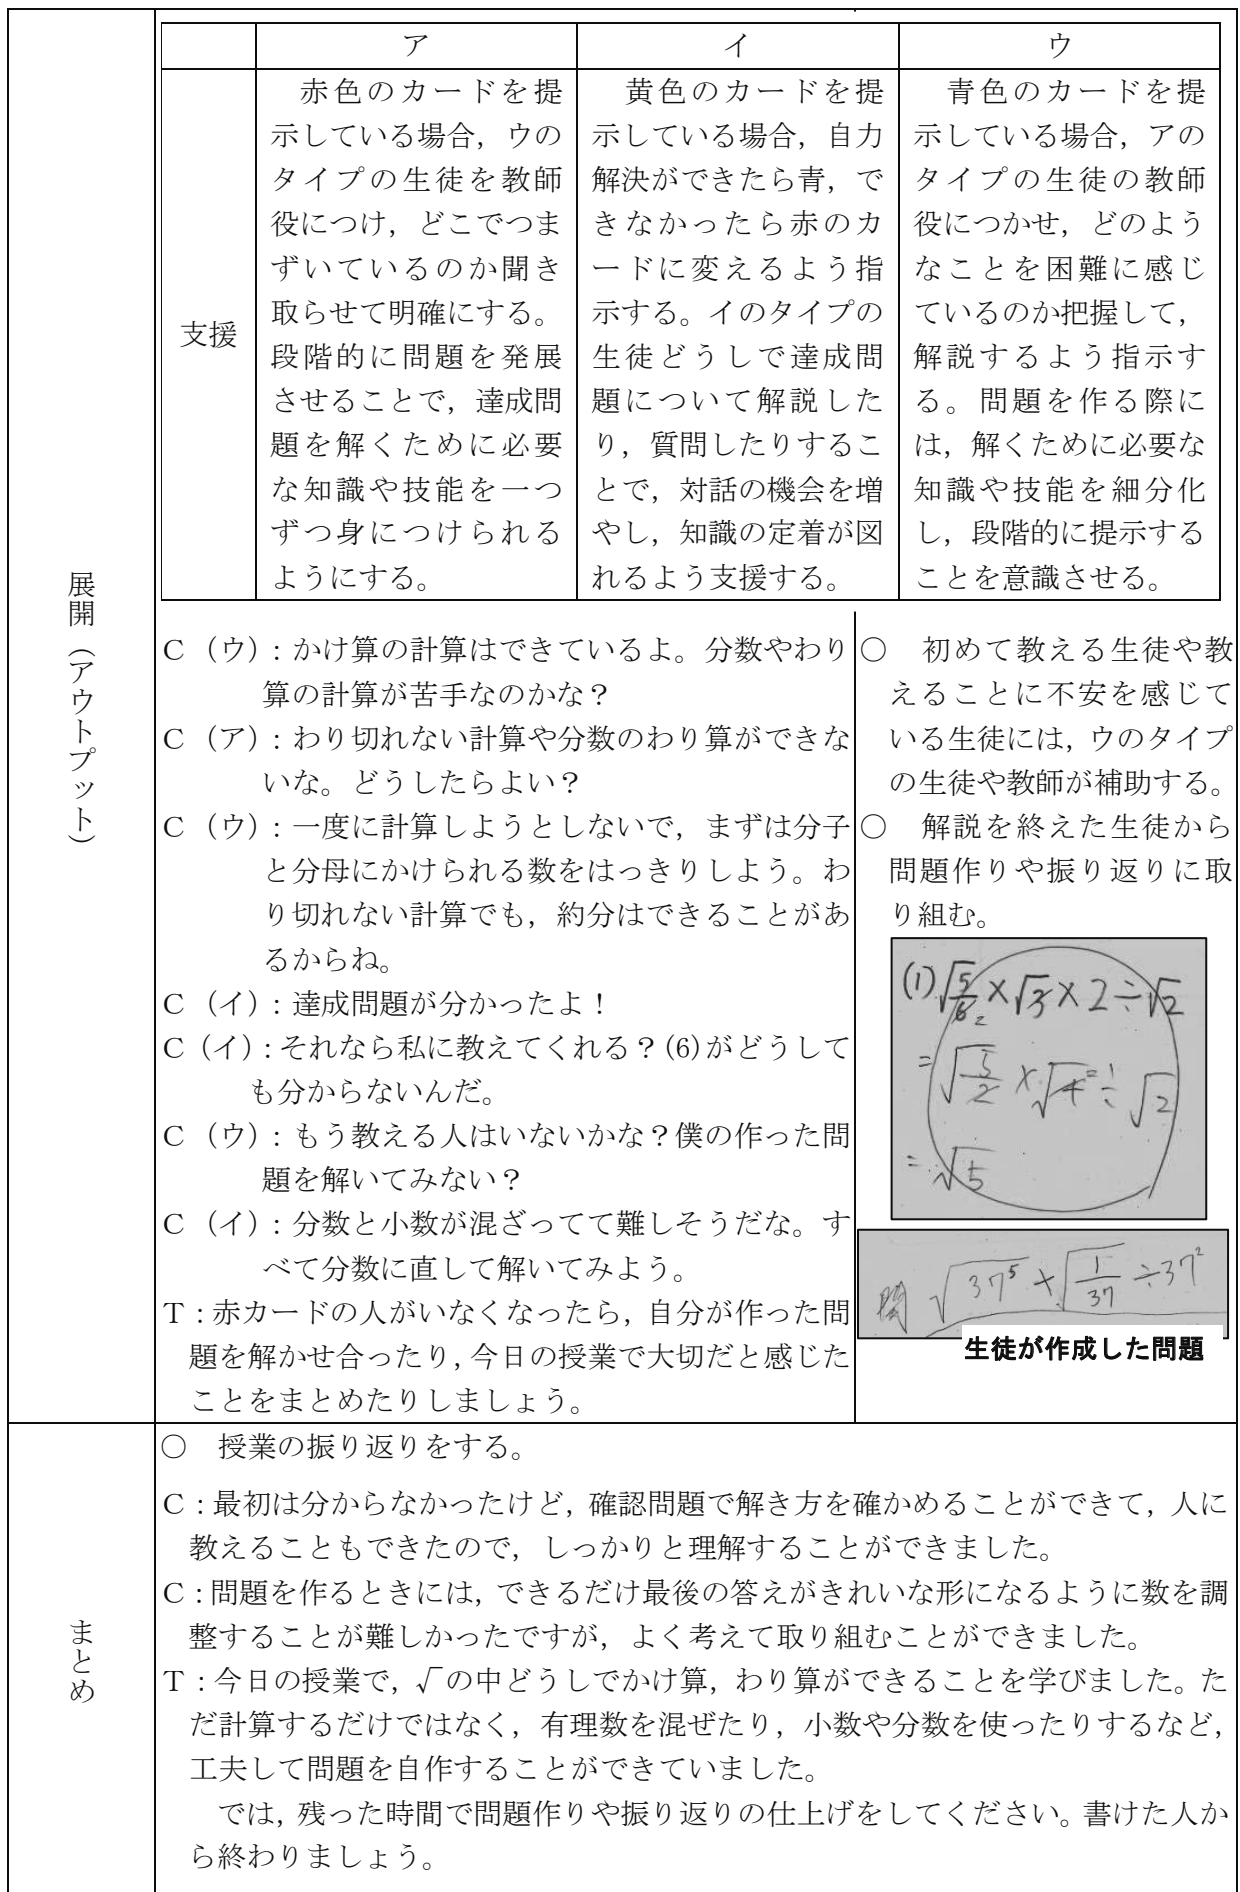 ア
イ
ウ
支援
赤色のカードを提
示している場合，ウの
タイプの生徒を教師
役につけ，どこでつま
ずいているのか聞き
取らせて明確にする。
段階的に問題を発展
させることで，達成問
題を解くために必要
な知識や技能を一つ
ずつ身につけられる
ようにする。
黄色のカードを提
示している場合，自力
解決ができたら青，で
きなかったら赤のカ
ードに変えるよう指
示する。イのタイプの
生徒どうしで達成問
題について解説した
り，質問したりするこ
とで，対話の機会を増
やし，知識の定着が図
れるよう支援する。
青色のカードを提
示している場合，アの
タイプの生徒の教師
役につかせ，どのよう
なことを困難に感じ
ているのか把握して，
解説するよう指示す
る。問題を作る際に
は，解くために必要な
知識や技能を細分化
し，段階的に提示する
ことを意識させる。
展開（アウトプット）
Ｃ（ウ）：かけ算の計算はできているよ。分数やわり
算の計算が苦手なのかな？
Ｃ（ア）：わり切れない計算や分数のわり算ができな
いな。どうしたらよい？
Ｃ（ウ）：一度に計算しようとしないで，まずは分子
と分母にかけられる数をはっきりしよう。わ
り切れない計算でも，約分はできることがあ
るからね。
Ｃ（イ）：達成問題が分かったよ！
Ｃ（イ）：それなら私に教えてくれる？(6)がどうして
も分からないんだ。
Ｃ（ウ）：もう教える人はいないかな？僕の作った問
題を解いてみない？
Ｃ（イ）：分数と小数が混ざってて難しそうだな。す
べて分数に直して解いてみよう。
Ｔ：赤カードの人がいなくなったら，自分が作った問
題を解かせ合ったり，今日の授業で大切だと感じた
ことをまとめたりしましょう。
○　初めて教える生徒や教
えることに不安を感じて
いる生徒には，ウのタイプ
の生徒や教師が補助する。
○　解説を終えた生徒から
問題作りや振り返りに取
り組む。
(1)√5/6 2×√3×2÷√2
=√5/2×√4=1÷√2
=√5
問 √37⁵×√1/37÷37²
生徒が作成した問題
まとめ
○　授業の振り返りをする。
Ｃ：最初は分からなかったけど，確認問題で解き方を確かめることができて，人に
教えることもできたので，しっかりと理解することができました。
Ｃ：問題を作るときには，できるだけ最後の答えがきれいな形になるように数を調
整することが難しかったですが，よく考えて取り組むことができました。
Ｔ：今日の授業で，√の中どうしでかけ算，わり算ができることを学びました。た
だ計算するだけではなく，有理数を混ぜたり，小数や分数を使ったりするなど，
工夫して問題を自作することができていました。
では，残った時間で問題作りや振り返りの仕上げをしてください。書けた人か
ら終わりましょう。